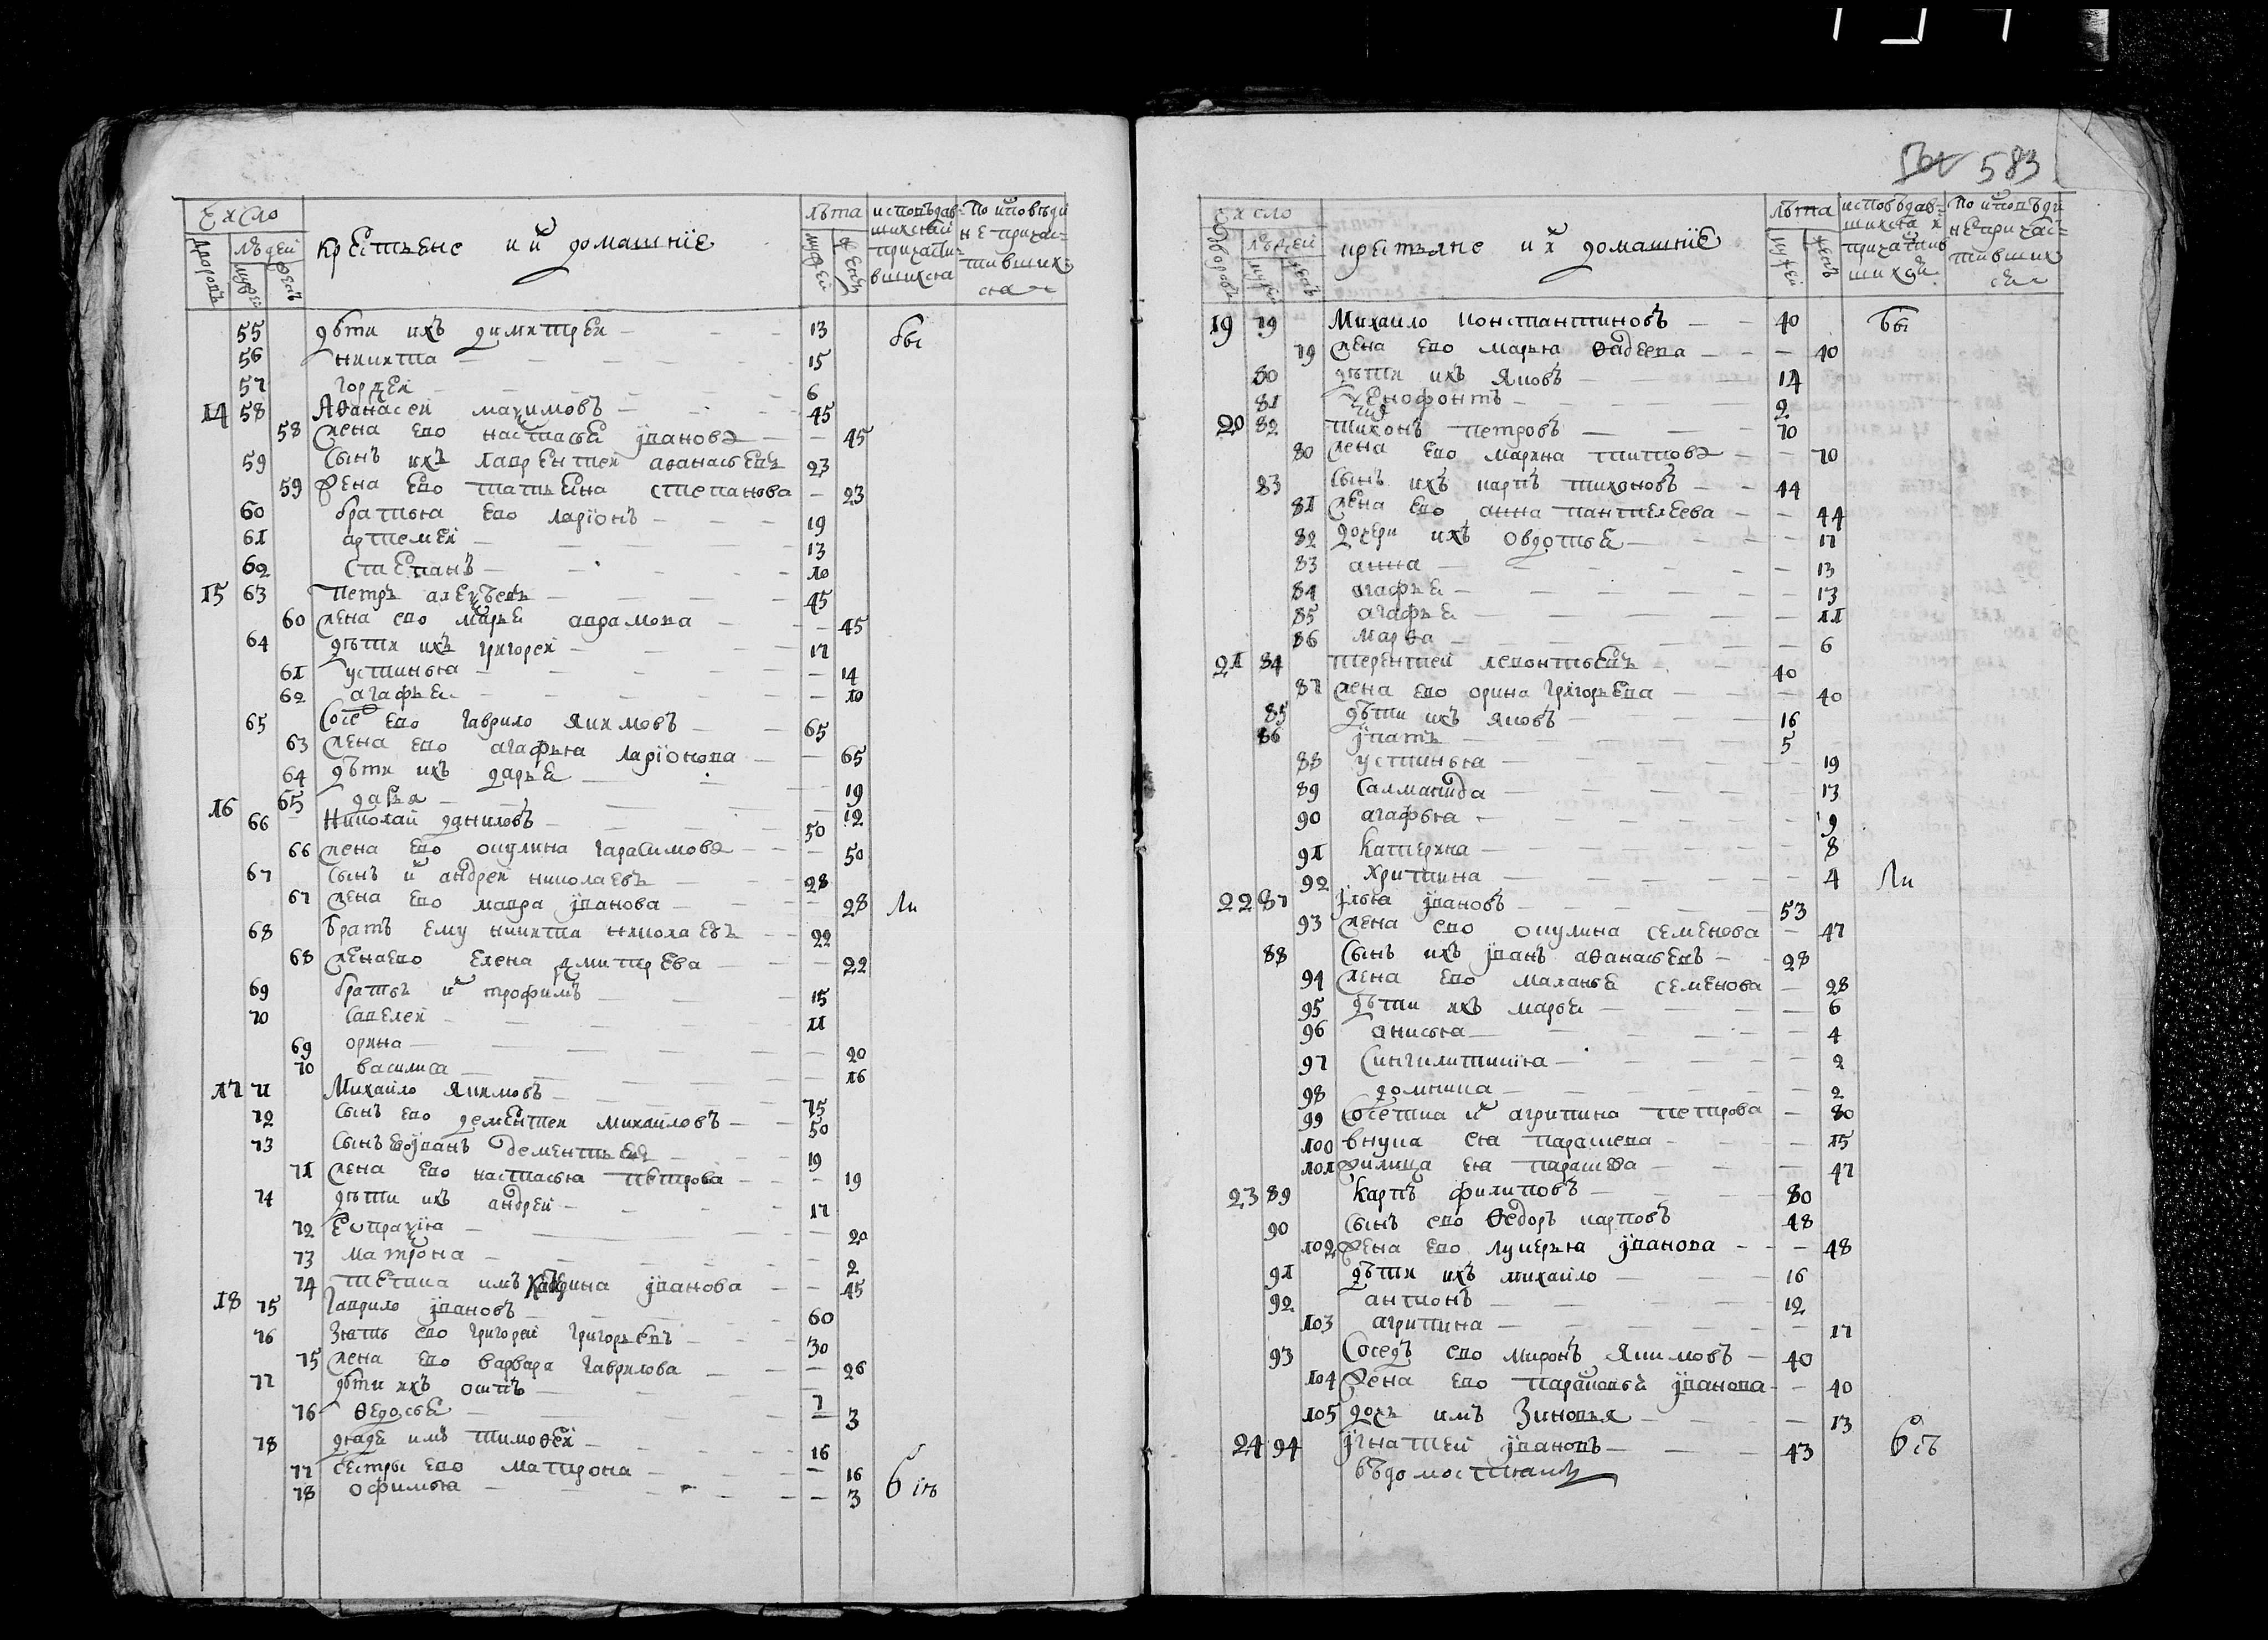 число
людей
дворовъ
мужей
женъ
крестьяне и ихъ домашнїе
лѣта
мужей
женъ
исповѣдав-
шихся и
причасти-
вшихся
По исповѣди
не причас-
тивших-
ся
55 дѣти ихъ димитреи 13 бы
56 никита 15
57 гордеи 6
14 58 Аѳанасеи маѯимовъ 45
58 жена ево настасья їванова 45
59 сынъ ихъ лаврентеи аѳанасьевъ 23
59 Жена ево татьяна степанова 23
60 братья ево ларїонъ 19
61 артемеи 13
62 степанъ 10
15 63 петръ алеѯѣевъ 45
60 жена ево марья аврамова 45
64 дѣти ихъ григореи 17
61 устинья 14
62 агафья 10
65 сосед ево гаврило якимовъ 65
63 жена ево агафья ларїонова 65
64 дѣти ихъ дарья 19
65 дарья 12
16 66 Николаи даниловъ 50
66 жена ево окулина гарасимова 50
67 сынъ их андреи николаевъ 28
67 жена ево мавра їванова 28 ли
68 братъ ему никита николаевъ 22
68 жена ево елена дмитрева 22
69 братья их трофимъ 15
70 савелеи 11
69 орина 20
70 василиса 16
17 71 Михаило якимовъ 75
72 сынъ ево дементеи михаиловъ 50
73 сынъ ево їванъ дементьевъ 19
71 жена ево настасья петрова 19
74 дѣти ихъ андреи 17
72 Еопраѯїя 20
73 матрона 2
74 тетка имъ їванова 45
18 75 Гаврило ївановъ 60
76 Зять ево григореи григорьевъ 30
75 жена ево варвара гаврилова 26
77 дѣти ихъ осипъ 7
76 ѳедосья 3
78 дядя имъ тимоѳеи 16
77 сестры ево матрона 16
78 офимья 3 бiлъ
583
число
людей
дворовъ
мужей
женъ
крестьяне и их домашнїе
лѣта
мужей
женъ
исповѣдав-
шихся и
причастив
шихся
По исповѣди
не причас-
тивших
ся
19 79 Михаило константиновъ 40 бы
79 жена ево марья ѳадеева 40
80 дѣти ихъ яковъ 14
81 ѯенофонтъ 2
20 82 тихонъ петровъ 70
80 жена ево марина титова 70
83 сынъ ихъ карпъ тихоновъ 44
81 жена ево анна пантелеева 44
82 дочери ихъ овдотья 17
83 анна 13
84 агафья 13
85 агафья 11
86 марѳа 6
21 84 терентеи левонтьевъ 40
87 жена ево орина григорьева 40
85 дѣти ихъ яковъ 16
86 їпатъ 5
88 устинья 19
89 салманида 13
90 агафья 9
91 катерина 8
92 христина 4 ли
22 87 їлья ївановъ 53
93 жена ево окулина семенова 47
88 сынъ ихъ їванъ аѳанасьевъ 28
94 жена ево маланья семенова 28
95 дѣти ихъ марья 6
96 анисья 4
97 сингилитикия 2
98 домника 2
99 соседка их агрипина петрова 80
100 внука ея парасковя 15
101 ея 47
23 89 Карпъ филиповъ 80
90 сынъ ево ѳедоръ карповъ 48
102 Жена ево лукерья їванова 48
91 дѣти ихъ михаило 16
92 антонъ 12
103 агрипина 17
93 соседъ ево миронъ якимовъ 40
104 Жена ево парасковья їванова 40
105 дочь имъ зиновья 13
24 94 їгнатеи ївановъ 43 бiлъ
вѣдомостиамъ